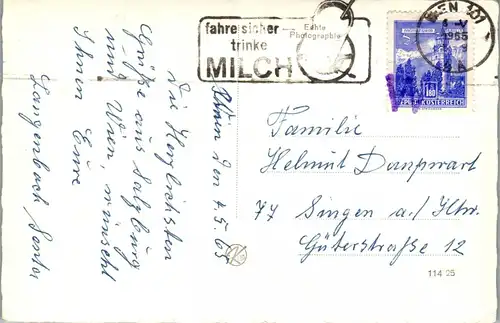 fahre sicher
trinke
MILCH
Echte
Photographie
WIEN 101
1965
REPUBLIK ÖSTERREICH
Wien den 4.5.65
Die Herzlichsten
Grüße aus Salzburg
und Wien, wünscht
Ihnen Eure
Langenbach Senta
Familie
Helmut Danpwart
77 Singen a./Htw.
Güterstraße 12
114 25